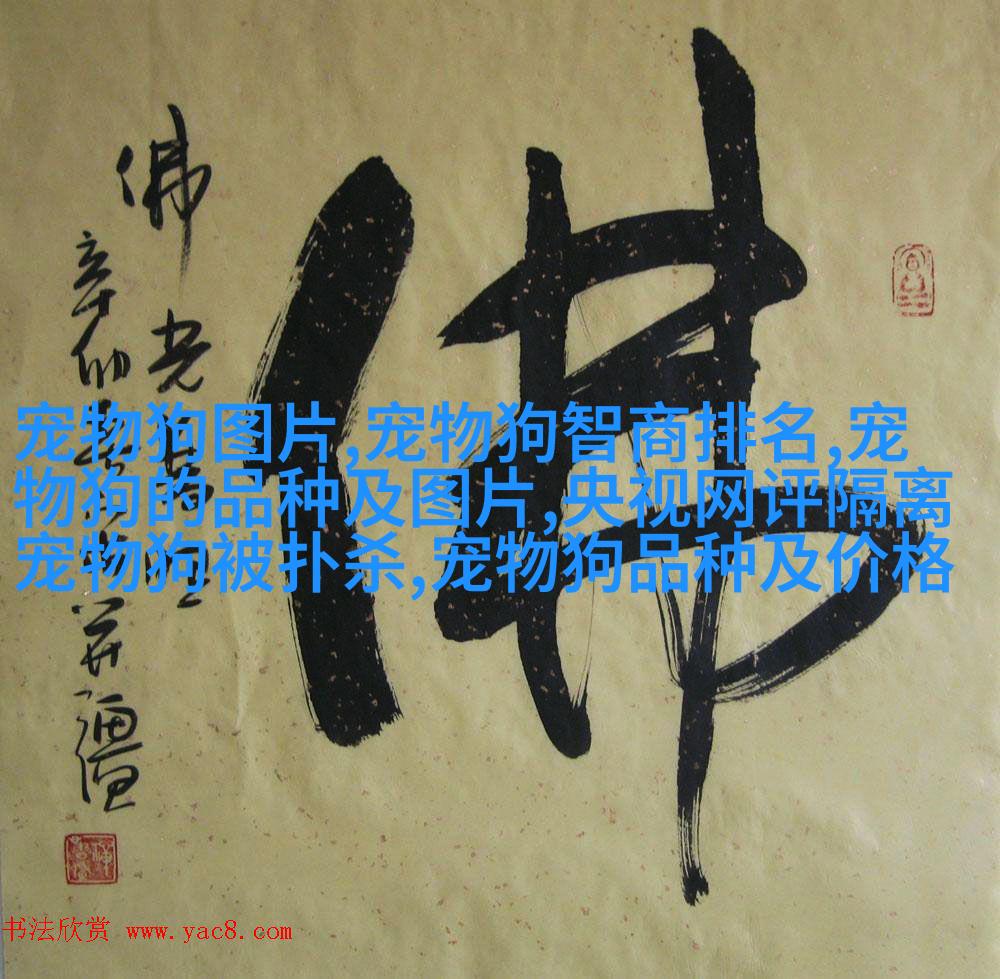 佛
佛光普照
辛卯
宠物狗图片,宠物狗智商排名,宠
物狗的品种及图片,央视网评隔离
宠物狗被扑杀,宠物狗品种及价格
书法欣赏 www.yac8.com